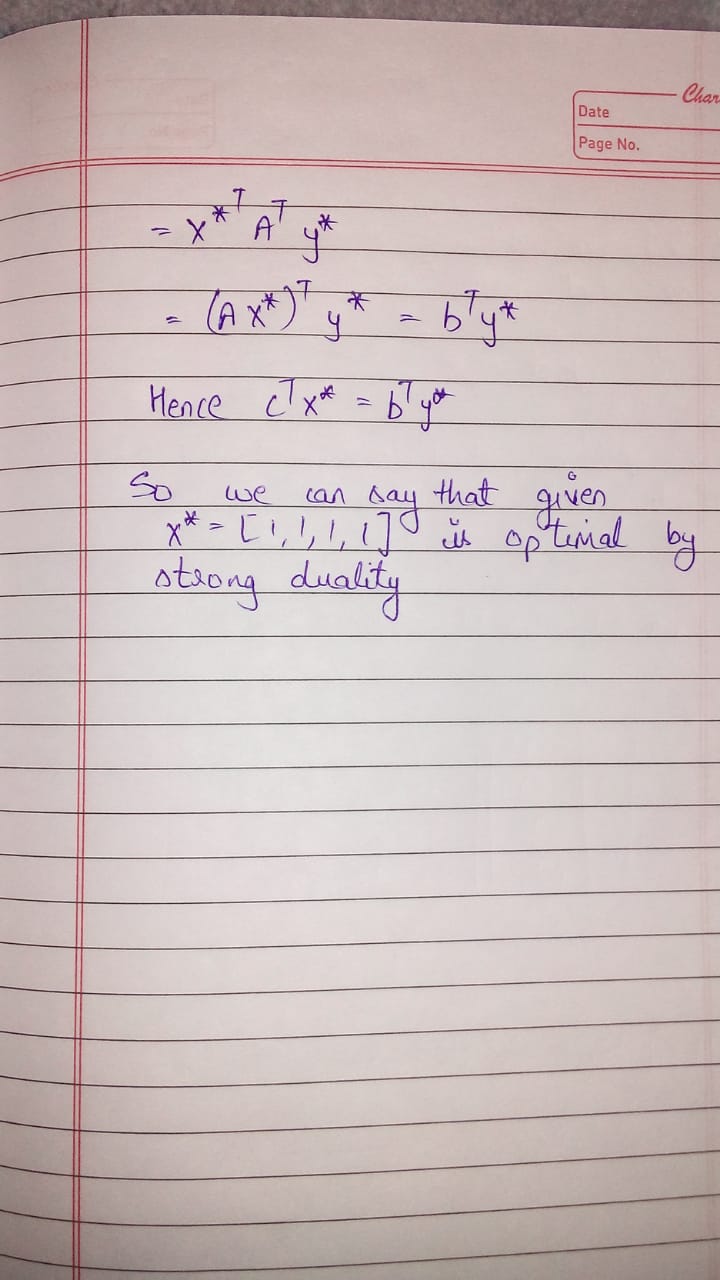 Char
Date
Page No.
= x*ᵀ Aᵀ y*
= (A x*)ᵀ y* = bᵀy*
Hence cᵀx* = bᵀy*
So we can say that given
x* = [1, 1, 1, 1] is optimal by
strong duality